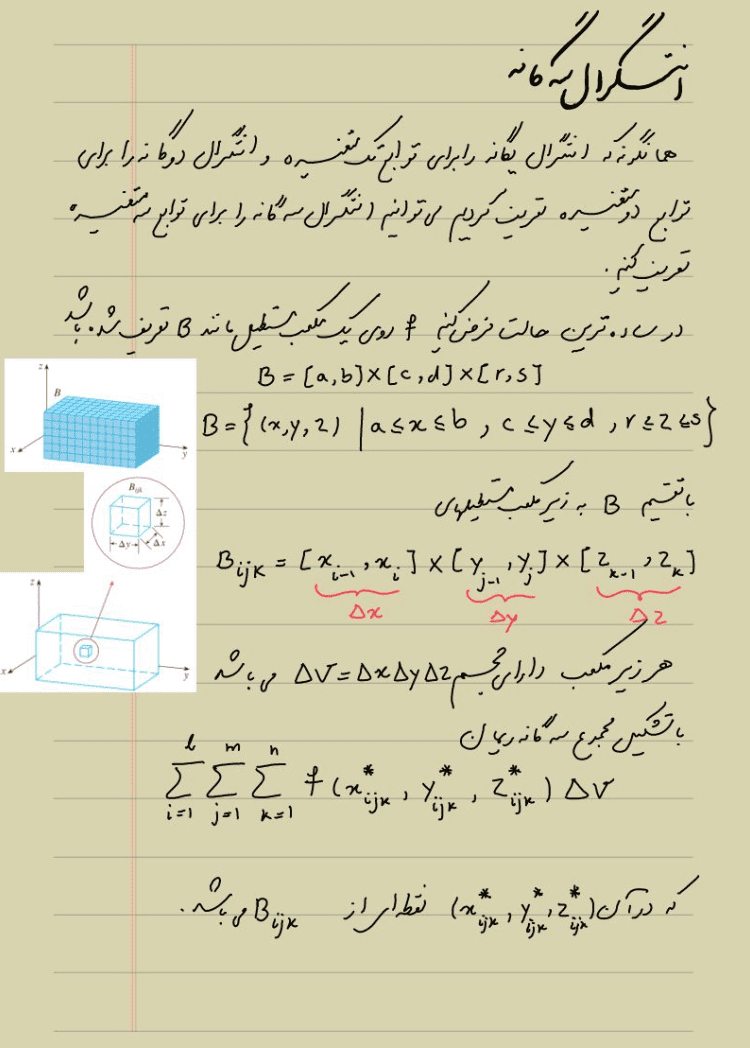 انتگرال سه گانه
همانگونه که انتگرال یگانه را برای توابع تک متغیره و انتگرال دوگانه را برای
توابع دو متغیره تعریف کردیم می توانیم انتگرال سه گانه را برای توابع سه متغیره
تعریف کنیم.
در ساده ترین حالت فرض کنیم f روی یک مکعب مستطیل مانند B تعریف شده باشد
B = [a,b]×[c,d]×[r,s]
B = {(x,y,z) | a≤x≤b , c≤y≤d , r≤z≤s}
z
B
x
y
با تقسیم B به زیر مکعب مستطیلهای
B_ijk
Δz
Δy Δx
B_ijk = [x_i-1 , x_i] × [y_j-1 , y_j] × [z_k-1 , z_k]
Δx Δy Δz
z
x
y
هر زیر مکعب دارای حجم ΔV = ΔxΔyΔz می باشد
با تشکیل مجموع سه گانه ریمان
l m n
∑ ∑ ∑ f(x*_ijk , y*_ijk , z*_ijk) ΔV
i=1 j=1 k=1
که در آن (x*_ijk , y*_ijk , z*_ijk) نقطه ای از B_ijk می باشد.